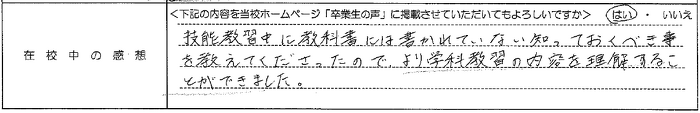 <下記の内容を当校ホームページ「卒業生の声」に掲載させていただいてもよろしいですか> はい ・ いいえ
在校中の感想
技能教習中に教科書には書かれていない知っておくべき事
を教えてくださったので、より学科教習の内容を理解するこ
とができました。